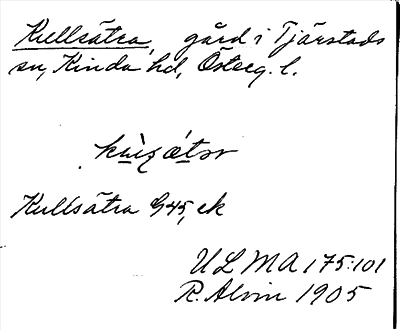 Kullsätra, gård i Tjärstads
sn, Kinda hd, Österg. l.
Kullsätra G45, ek
ULMA 175:101
R. Alvin 1905